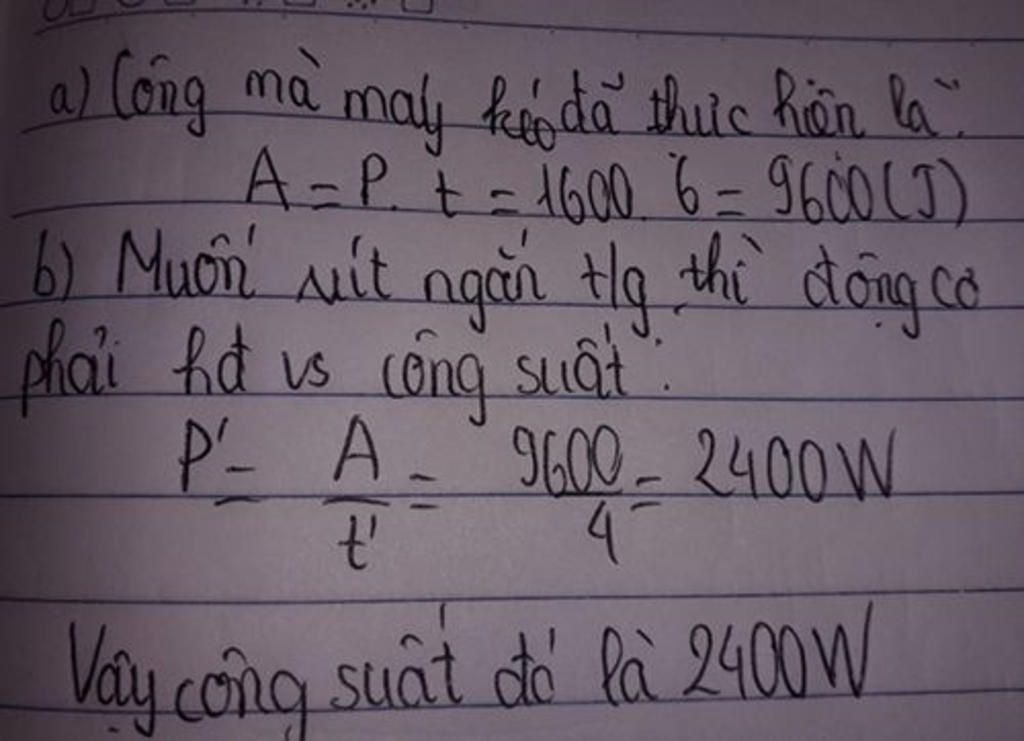 a) Công mà máy kéo đã thực hiện là:
A = P. t = 1600. 6 = 9600 (J)
b) Muốn rút ngắn t/g thì động cơ
phải hđ vs công suất:
P' = A/t' = 9600/4 = 2400W
Vậy công suất đó là 2400W